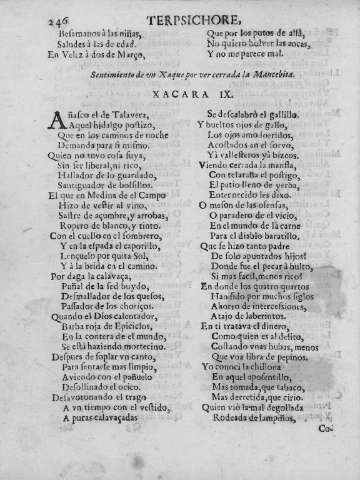 246 TERPSICHORE,
Besamanos à las niñas,
Saludes à las de edad.
En Velez à dos de Março,
Que por los putos de allà,
No quiero bolver las ancas,
Y no me parece mal.
Sentimiento de vn Xaque por ver cerrada la Mancebia.
XACARA IX.
Añasco el de Talavera,
Aquel hidalgo postizo,
Que en los caminos de noche
Demanda para si mismo.
Quien no tuvo cosa suya,
Sin ser liberal, ni rico,
Hallador de lo guardado,
Santiguador de bolsillos.
El que en Medina de el Campo
Hizo de vestir al vino,
Sastre de açumbre, y arrobas,
Ropero de blanco, y tinto.
Con el cuello en el sombrero,
Y en la espada el capotillo,
Lençuelo por quita Sol,
Y à la brida en el camino.
Por daga la calavaça,
Puñal de la sed buydo,
Desmallador de los quesos,
Passador de los choriços.
Quando el Dios calentador,
Barba roja de Epiciclos,
En la contera de el mundo,
Se està haziendo mortecino.
Despues de soplar vn canto,
Para sentarse mas limpio,
Aviendo con el pañuelo
Desollinado el ocico.
Desavotonando el trago
A vn tiempo con el vestido,
A puras calavaçadas
Se descalabrò el gallillo.
Y bueltos ojos de gallo,
Los ojos amodorridos,
Acostados en el sorvo,
Yà vallesteros yà bizcos.
Viendo cerrada la mansla,
Con telaraña el postigo,
El patio lleno de yerba,
Enternecido les dixo.
O meson de las ofensas,
O paradero de el vicio,
En el mundo de la carne
Para el diablo baratillo.
Que se hizo tanto padre
De solo apuntados hijos?
Donde fue el pecar à bulto,
Si mas facil, menos rico?
En donde los quatro quartos
Han sido por muchos siglos
Ahorro de intercessiones,
Atajo de laberintos.
En ti tratava el dinero,
Como quien es al delito,
Costando vnas bubas, menos
Que vna libra de pepinos.
Yo conoci la chillona
En aquel aposentillo,
Mas tomada, que tabaco,
Mas derretida, que cirio.
Quien viò la mal degollada
Rodeada de lampiños,
Co-